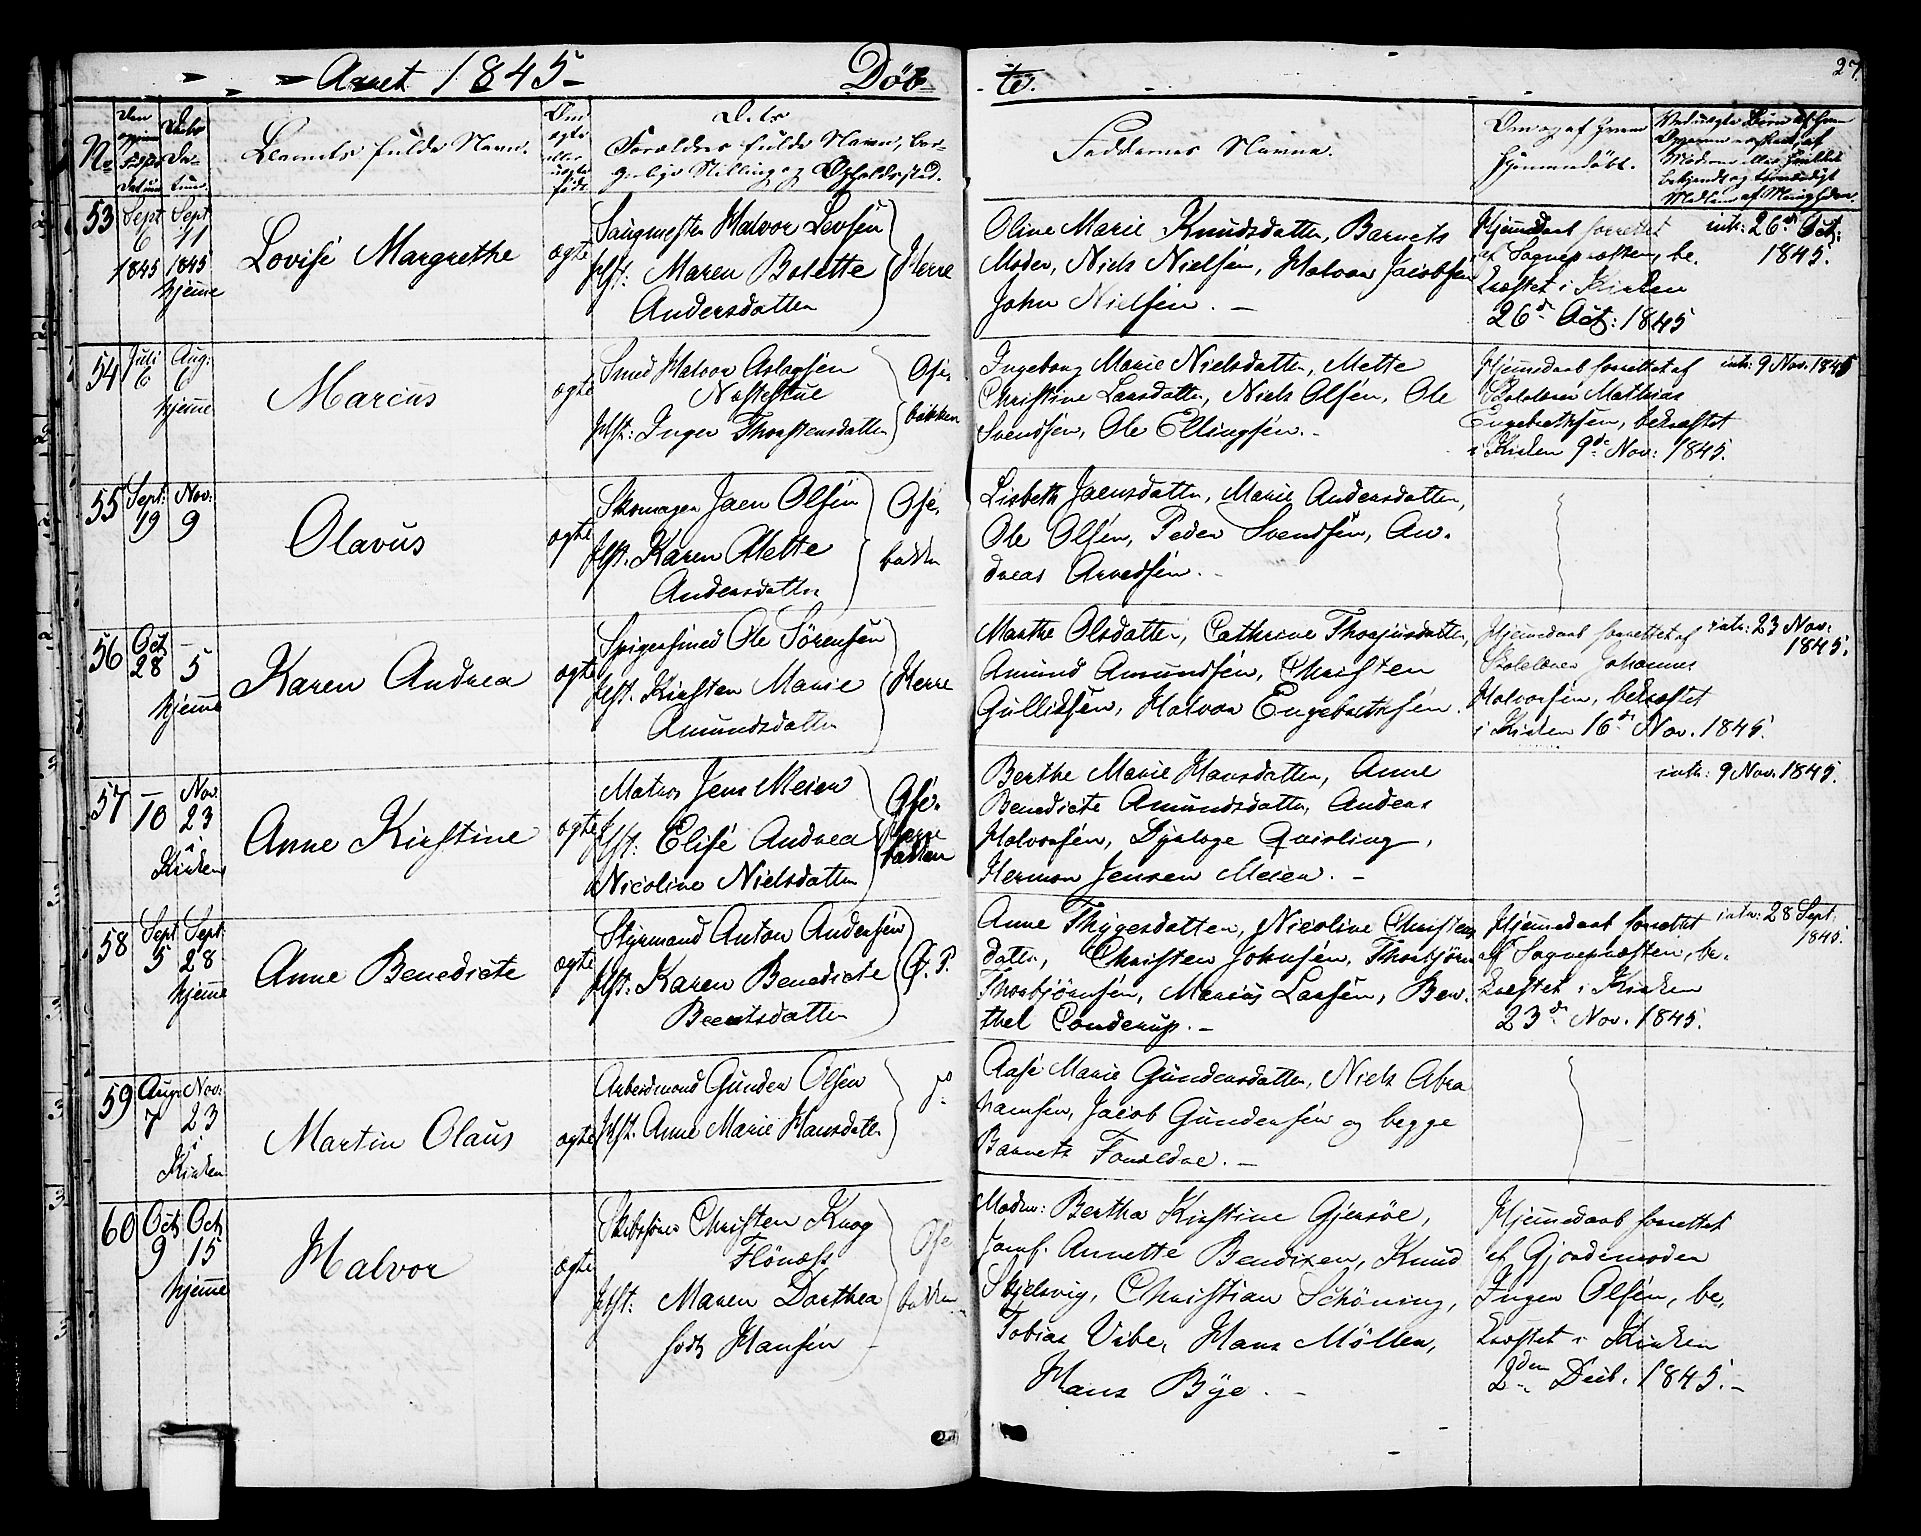 Aaret 1845 Döb
te.
27
No
Den
Daabs
Barnets fulde Navn.
Om
ægte
eller
uægte
født
Dets
Forældres fulde Navn, bor-
gerlige Stilling og Opholdssted.
Faddernes Navne.
Om og af hvem
hjemmedöbt.
53
Sept
6
1845
Sept
11
1845
hjemme
Lovise Margrethe
ægte
Saugmester Halvor Levsen
Hst: Maren Bolette
Andersdatter
Herre
Oline Marie Knudsdatter, Barnets
Moder, Niels Nielsen, Halvor Jacobsen
John Nielsen. –
Hjemedaab forrettet
af Sognepræsten, be-
kræftet i Kirken
26de Oct: 1845
intr: 26de Oct:
1845.
54
Juli
6
Aug:
6
hjemme
Marcus
ægte
Smed Halvor Aslagsen
Nustestue
Hst: Inger Thorstensdatter
Ose-
bakken
Ingeborg Marie Nielsdatter, Mette
Christine Larsdatter, Niels Olsen, Ole
Svendsen, Ole Ellingsen. -
Hjemedaab forrettet af
Skolelærer Mathias
Engebrethsen, bekræftet
i Kirken 9de Nov: 1845.
intr: 9 Nov. 1845
55
Sept:
19
Nov:
9
Olavus
ægte
Skomager Jaen Olsen
Hst. Karen Mette
Andersdatter
Ose-
bakken
Lisbeth Jaensdatter, Marie Andersdatter,
Ole Olsen, Peder Svendsen, An-
dreas Arvedsen. -
56
Oct
28
–
5
hjemme
Karen Andrea
ægte
Spigersmed Ole Sörensen
Hst. Kirsten Marie
Amundsdatter
Herre
Marthe Olsdatter, Cathrine Thorjusdatter,
Amund Amundsen, Christen
Gullichsen, Halvor Engebrethsen.
Hjemedaab forrettet af
Skolelærer Johannes
Halvorsen, bekræftet
i Kirken 16de Nov. 1845.
intr: 23 Nov:
1845.
57
–
10
Nov.
23
i
Kirken
Anne Kirstine
ægte
Matros Jens Meier
Hst: Elise Andrea
Nicoline Nielsdatter
Ose-
bakken
Berthe Marie Hansdatter, Anne
Benedicte Amundsdatter, Anders
Halvorsen, Dysloge Quisling,
Herman Jensen Meier. –
intr: 9 Nov. 1845.
58
Sept.
5
Sept.
28
hjemme
Anne Benedicte
ægte
Styrmand Anton Andersen
Hst: Karen Benedicte
Beentsdatter
Ø. P.
Anne Thygesdatter, Nicoline Christens
datter, Christen Johnsen, Thorbjörn
Thorbjörnsen, Marius Larsen, Ber-
thel Conderup. –
Hjemedaab forrettet
af Sognepræsten, be-
kræftet i Kirken
23de Nov. 1845.
intr: 28 Sept.
1845.
59
Aug:
7
Nov:
23
i
Kirken
Martin Olaus
ægte
Arbeidsmand Gunder Olsen
Hst. Anne Marie Hansdatter
do
Aase Marie Gundersdatter, Niels Abra
hamsen, Jacob Gundersen og begge
Barnets Forældre. –
60
Oct
9
Oct
15
hjemme
Halvor
ægte
Skibsförer Christen Knog
Flönæss
Hst: Maren Dorthea
födt Hansen
Ose
bakken
Moder: Bertha Kirstine Gjersöe,
Jomf. Annette Bendixen, Knud
Skjelsvig, Christian Schöning,
Tobias Vibe, Hans Möller,
Hans Bye. –
Hjemedaab forrettet
af Gjordemoder
Inger Olsen, be-
kræftet i Kirken
2den Decb. 1845. –